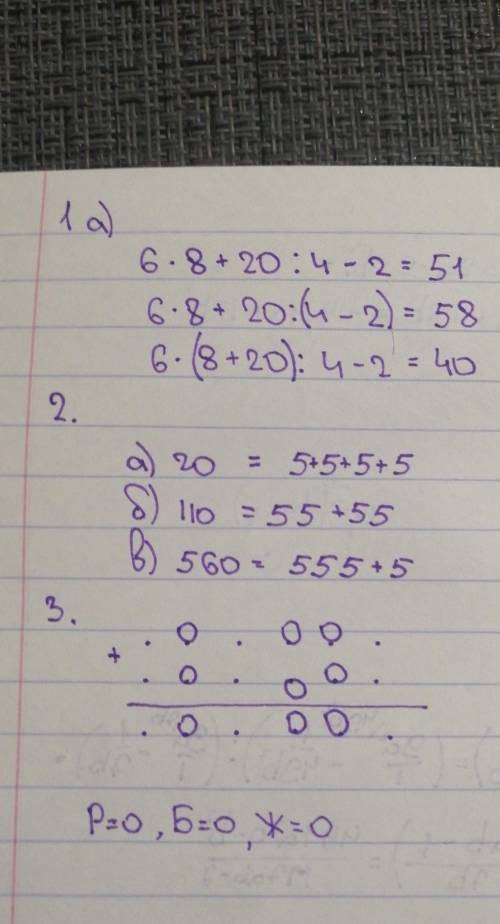 1 а)
6 · 8 + 20 : 4 - 2 = 51
6 · 8 + 20 : (4 - 2) = 58
6 · (8 + 20) : 4 - 2 = 40
2.
а) 20 = 5+5+5+5
б) 110 = 55 + 55
в) 560 = 555 + 5
3.
. 0 . 0 0 .
+
. 0 . 0 0 .
. 0 . 0 0 .
Р=0, Б=0, Ж=0